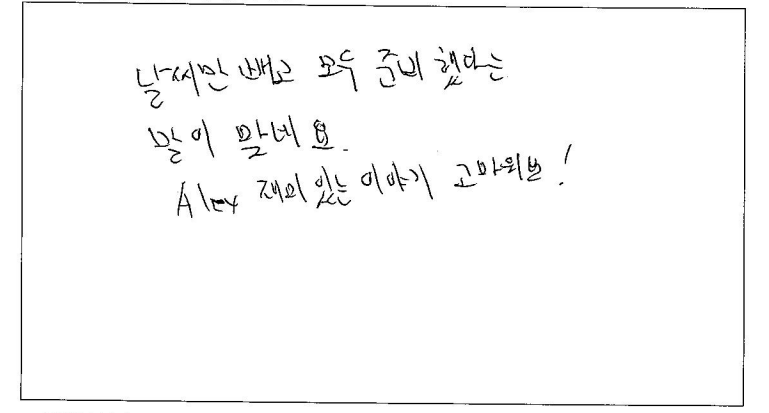 날씨만 빼고 모두 준비 했다는
말이 맞네요.
Alex 재미있는 이야기 고마워요!